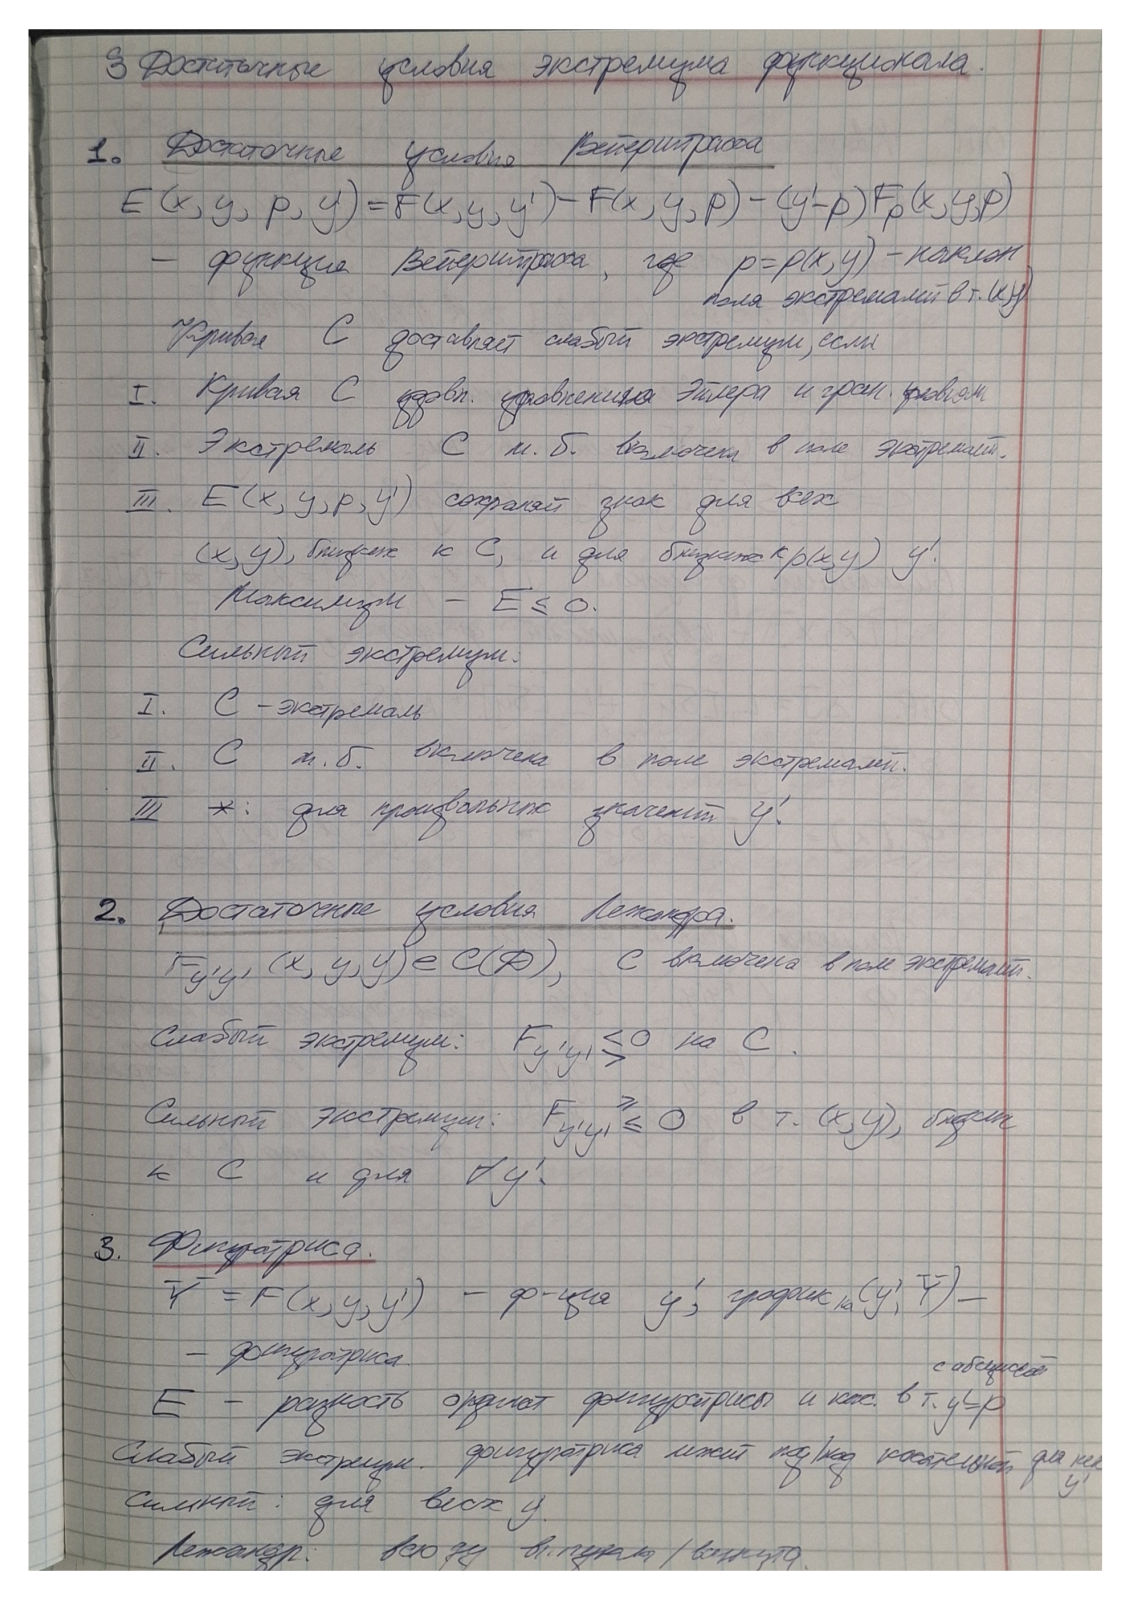 3 Достаточные условия экстремума функционала.
1. Достаточные условия Вейерштрасса
E(x, y, p, y') = F(x, y, y') - F(x, y, p) - (y'-p) Fₚ(x, y, p)
- функция Вейерштрасса, где p=p(x, y) - наклон
поля экстремалей в т.(x,y)
Кривая C доставляет слабый экстремум, если
I. Кривая C удовл. уравнению Эйлера и гран. условиям
II. Экстремаль C м.б. включена в поле экстремалей.
III. E(x, y, p, y') сохраняет знак для всех
(x, y), близких к C, и для близких к p(x,y) y'.
Максимум - E ≤ 0.
Сильный экстремум:
I. C - экстремаль
II. C м.б. включена в поле экстремалей.
III *: для произвольных значений y'.
2. Достаточные условия Лежандра.
F_y'y' (x, y, y') ∈ C(D), C включена в поле экстремалей.
Слабый экстремум: F_y'y' ≶ 0 на C.
Сильный экстремум: F_y'y' ⩾⩽ 0 в т. (x, y), близких
к C и для ∀ y'.
3. Фигуратриса.
Y = F(x, y, y') - ф-ция y', график на (y', Y) -
- фигуратриса
с абсциссой
E - разность ординат фигуратрисы и кас. в т. y'=p
Слабый экстремум. фигуратриса лежит под/над касательной для
y'
Сильный: для всех y'.
Лежандр: всюду выпукла/вогнута.